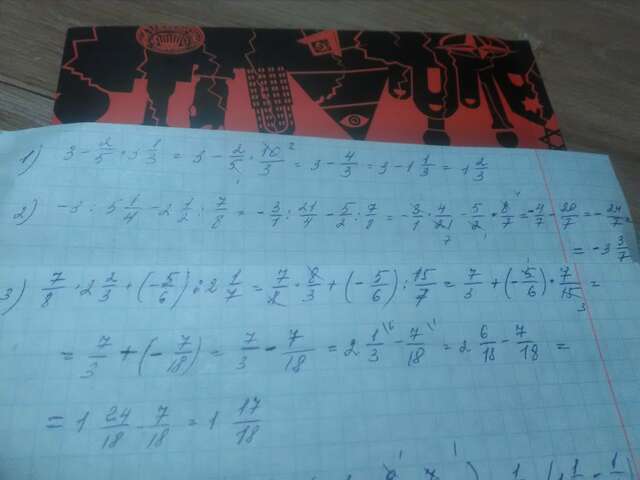 1) 3 - 2/5 · 3 1/3 = 3 - 2/5 · 10/3 = 3 - 4/3 = 3 - 1 1/3 = 1 2/3
2) -3 : 5 1/4 - 2 1/2 : 7/8 = -3/1 : 21/4 - 5/2 : 7/8 = -3/1 · 4/21 - 5/2 · 8/7 = -4/7 - 20/7 = -24/7
= -3 3/7
3) 7/8 · 2 2/3 + (-5/6) : 2 1/7 = 7/8 · 8/3 + (-5/6) : 15/7 = 7/3 + (-5/6) · 7/15 =
= 7/3 + (-7/18) = 7/3 - 7/18 = 2 1/3 - 7/18 = 2 6/18 - 7/18 =
= 1 24/18 - 7/18 = 1 17/18